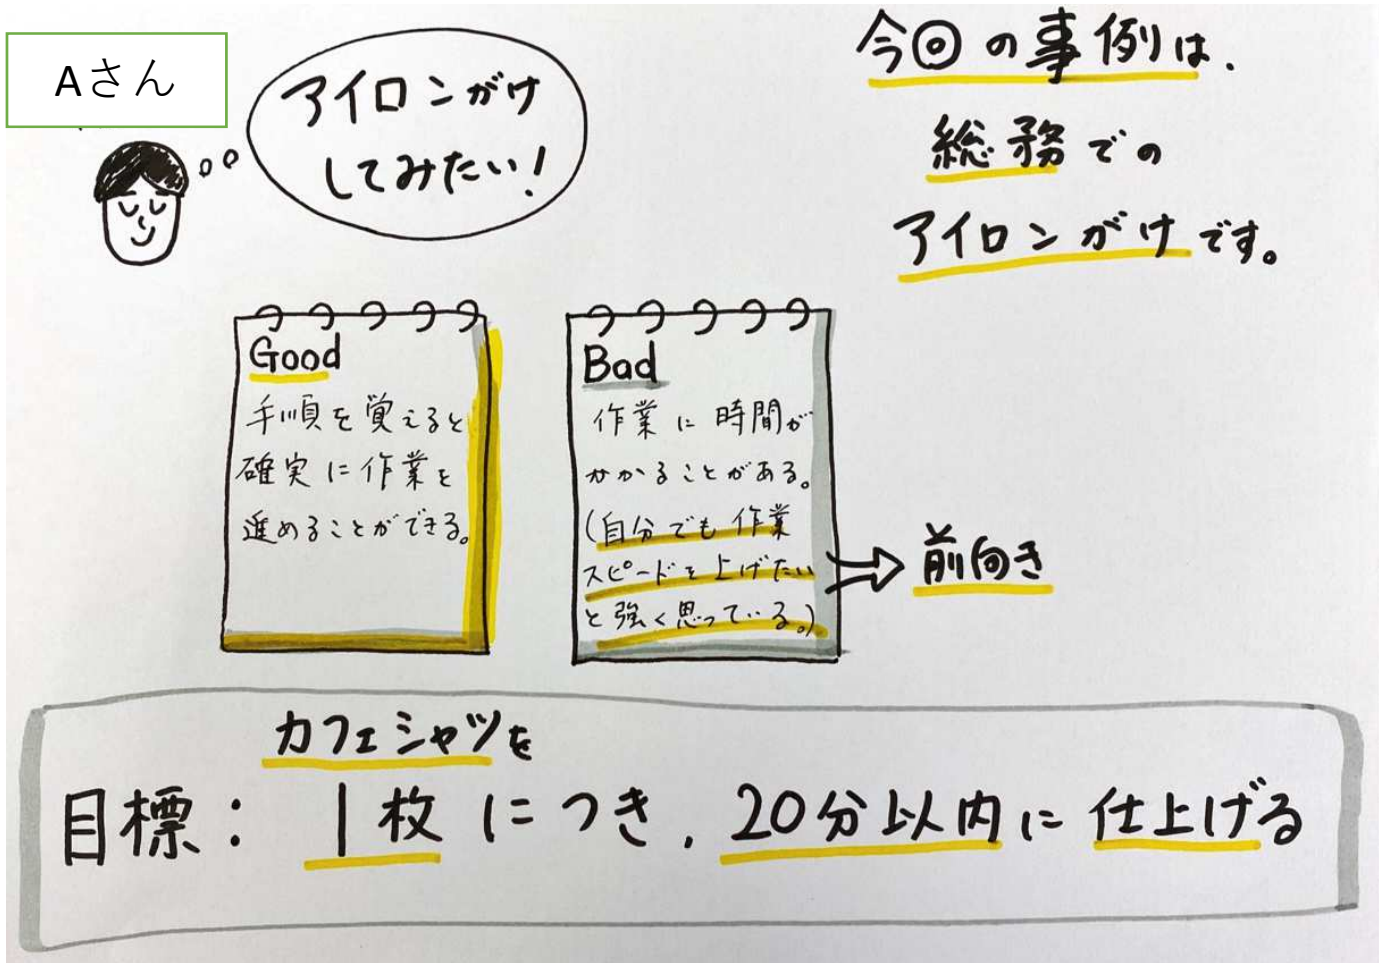 Aさん
アイロンがけ
してみたい!
今回の事例は、
総務での
アイロンがけです。
Good
手順を覚えると
確実に作業を
進めることができる。
Bad
作業に時間が
かかることがある。
(自分でも作業
スピードを上げたい
と強く思っている。)
前向き
カフェシャツを
目標:1枚につき、20分以内に仕上げる